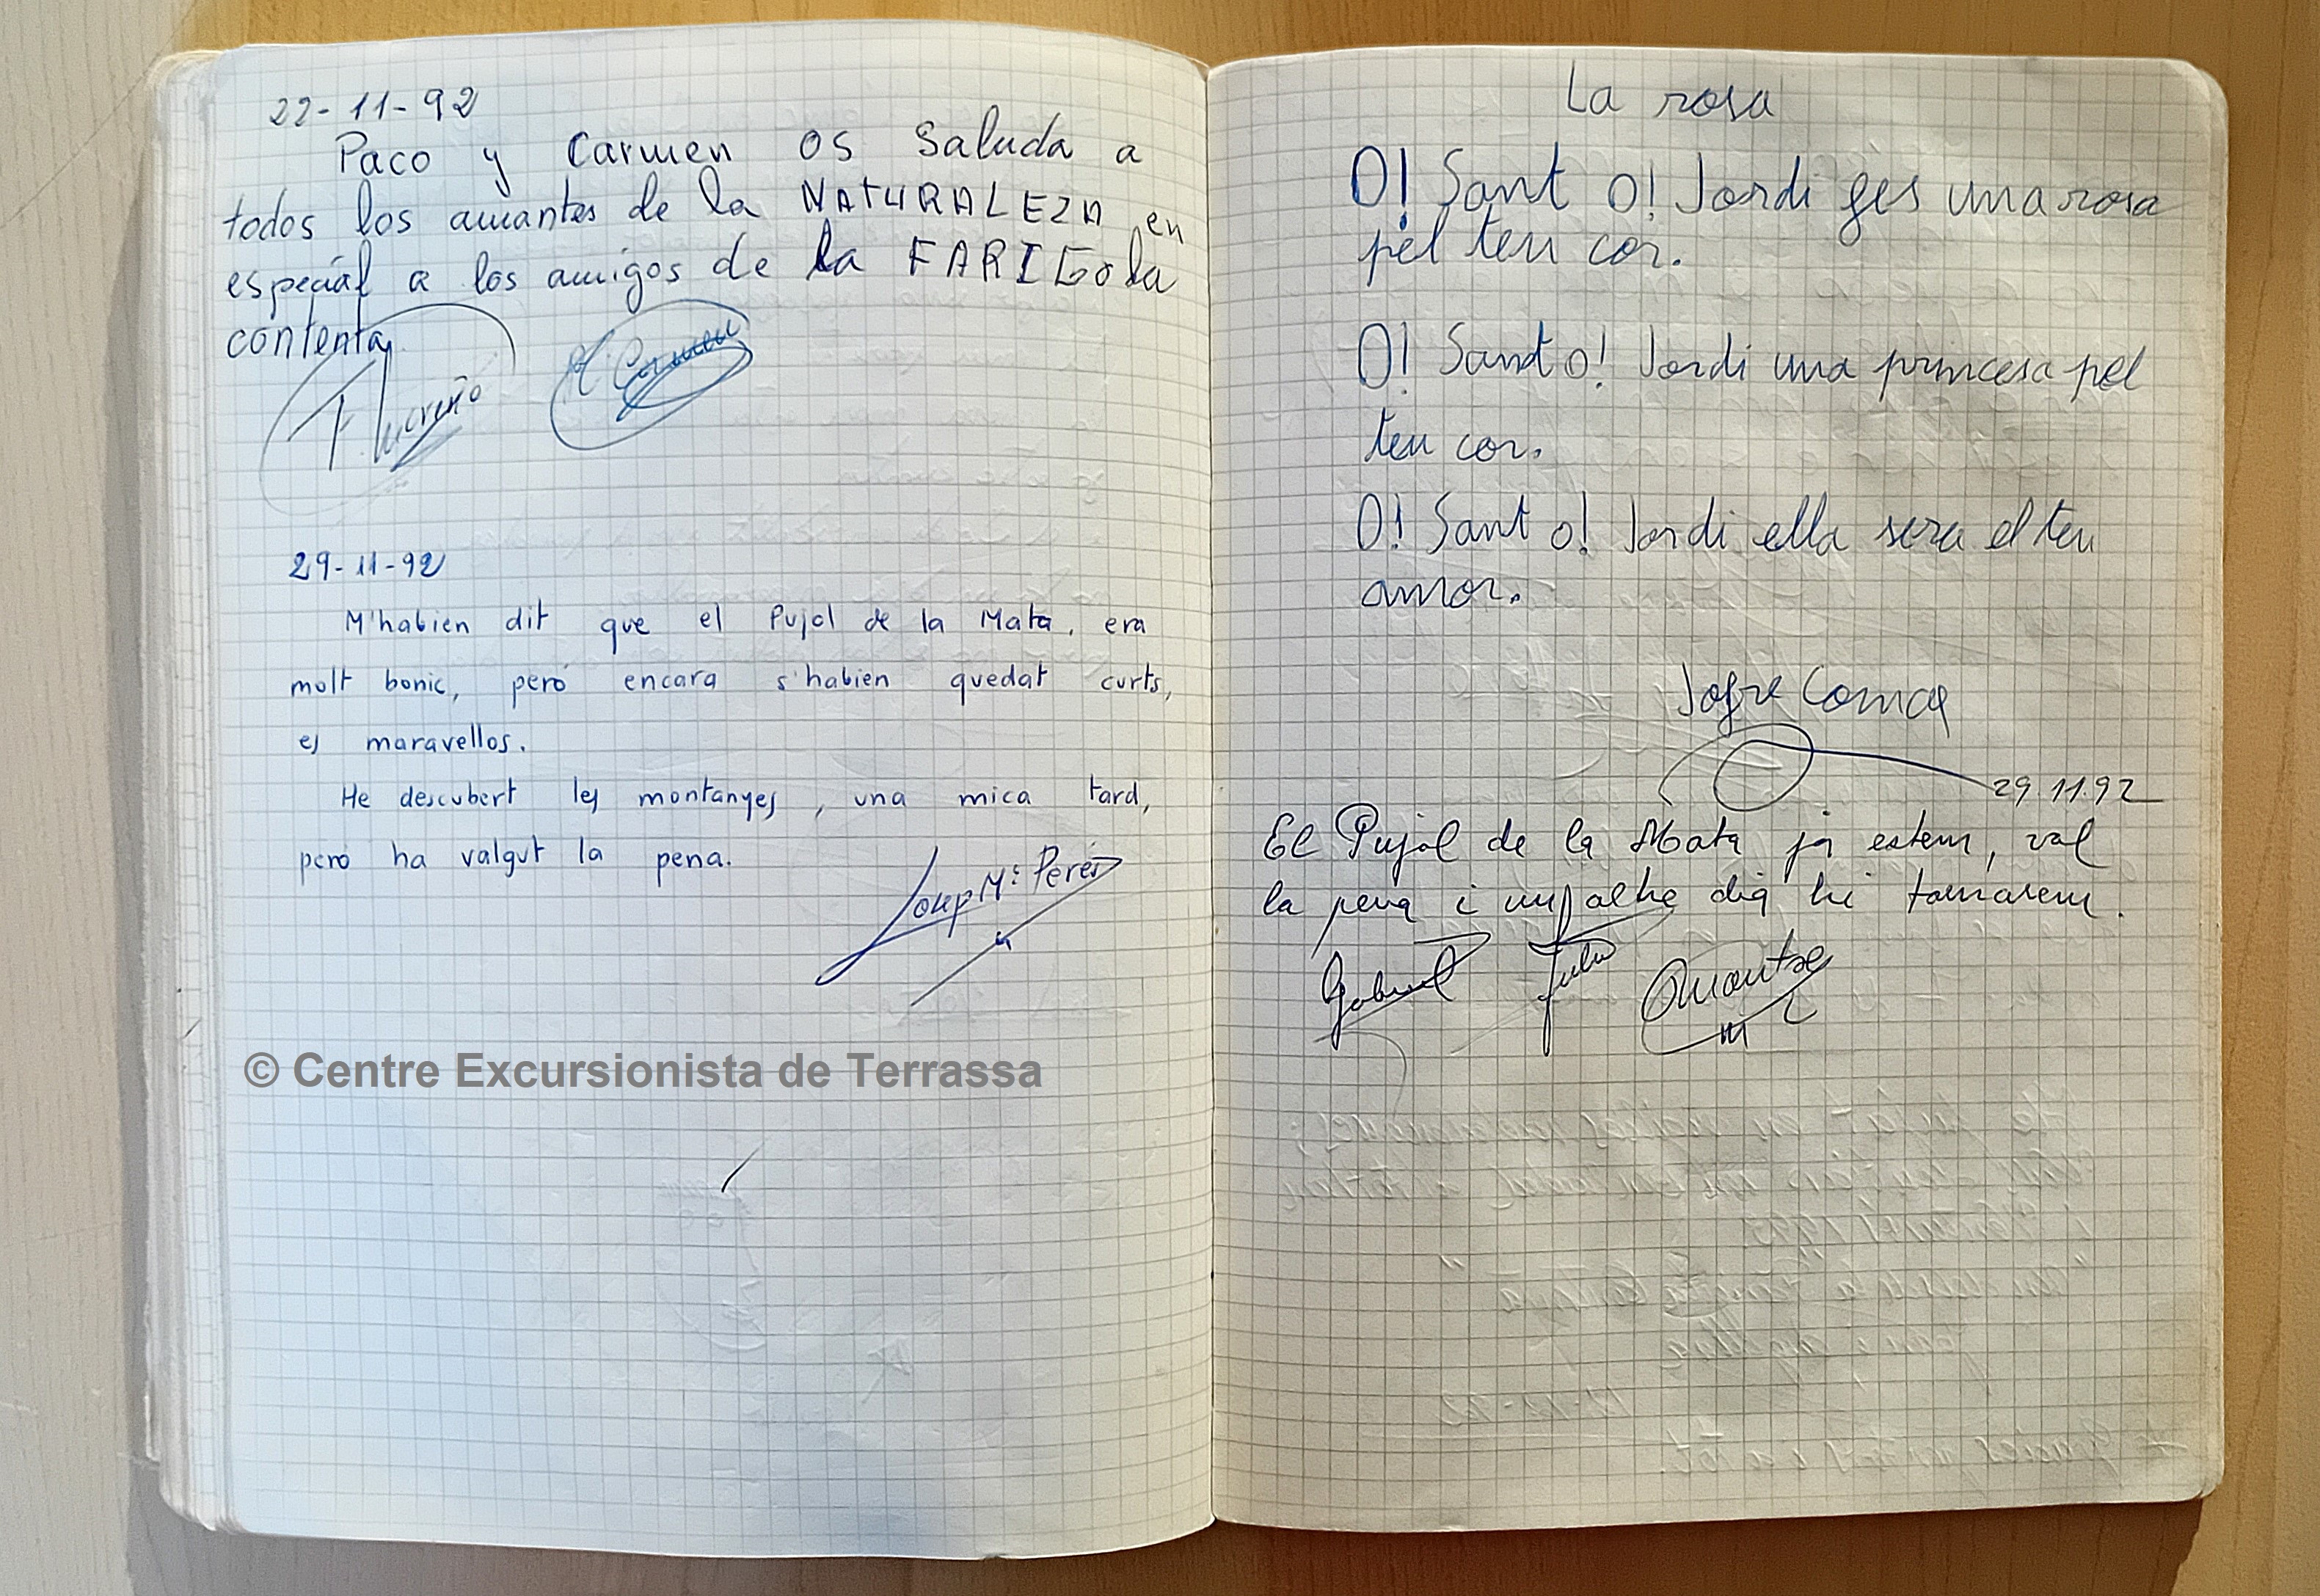 22-11-92
Paco y Carmen os saluda a
todos los amantes de la NATURALEZA en
especial a los amigos de la FARIGola
contenta
Carmen
29-11-92
M'habien dit que el Pujol de la Mata, era
molt bonic, però encara s'habien quedat curts,
es maravellos.
He descubert les montanyes, una mica tard,
però ha valgut la pena.
Josep Mª Perés
© Centre Excursionista de Terrassa
La rosa
O! Sant O! Jordi ges una rosa
pel teu cor.
O! Sant O! Jordi una princesa pel
teu cor.
O! Sant O! Jordi ella sera el teu
amor.
Jofre Comas
29.11.92
El Pujol de la Mata ja estem, val
la pena i un altre dia hi tornarem.
Gabriel Julio Montse